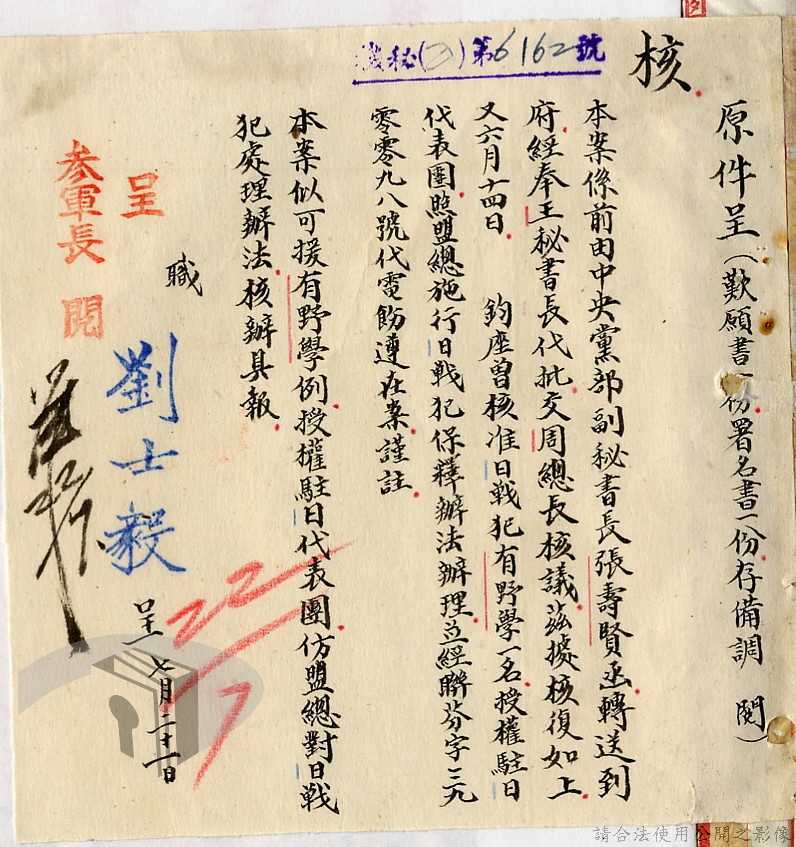 機秘(乙)第6162號
核
原件呈(歎願書一份署名書一份存備調閱)
本案係前由中央黨部副秘書長張壽賢函轉送到
府經奉王秘書長代批交周總長核議茲據核復如上
又六月十四日 鈞座曾核准日戰犯有野學一名授權駐日
代表團照盟總施行日戰犯保釋辦法辦理並經聯芬字三九
零零九八號代電飭遵在案謹註
本案似可援有野學例授權駐日代表團仿盟總對日戰
犯處理辦法核辦具報
呈
參軍長 閱
職
劉士毅
呈 七月二十一日
22/7
請合法使用公開之影像